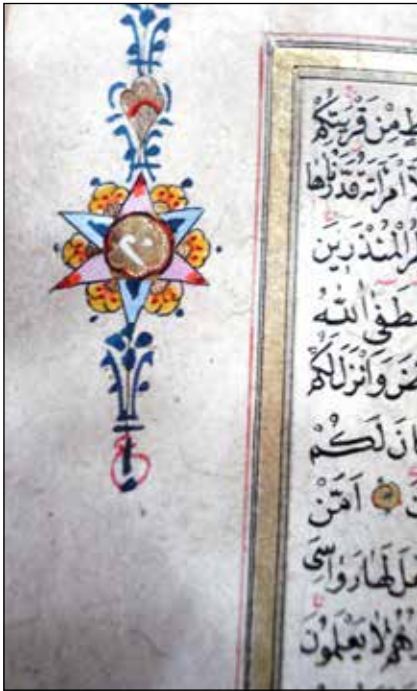 ٢٠
ع
ط مِنْ قَرْيَتِكُمْ
امْرَاَتَهُ قَدَّرْنَاهَا
رُ الْمُنْذَرِينَ
طَفٰى اللّٰهُ
ضَ وَاَنْزَلَ لَكُمْ
انَ لَكُمْ
اَمَّنْ
عَلَ لَهَا رَوَاسِىَ
هُمْ لَا يَعْلَمُونَ